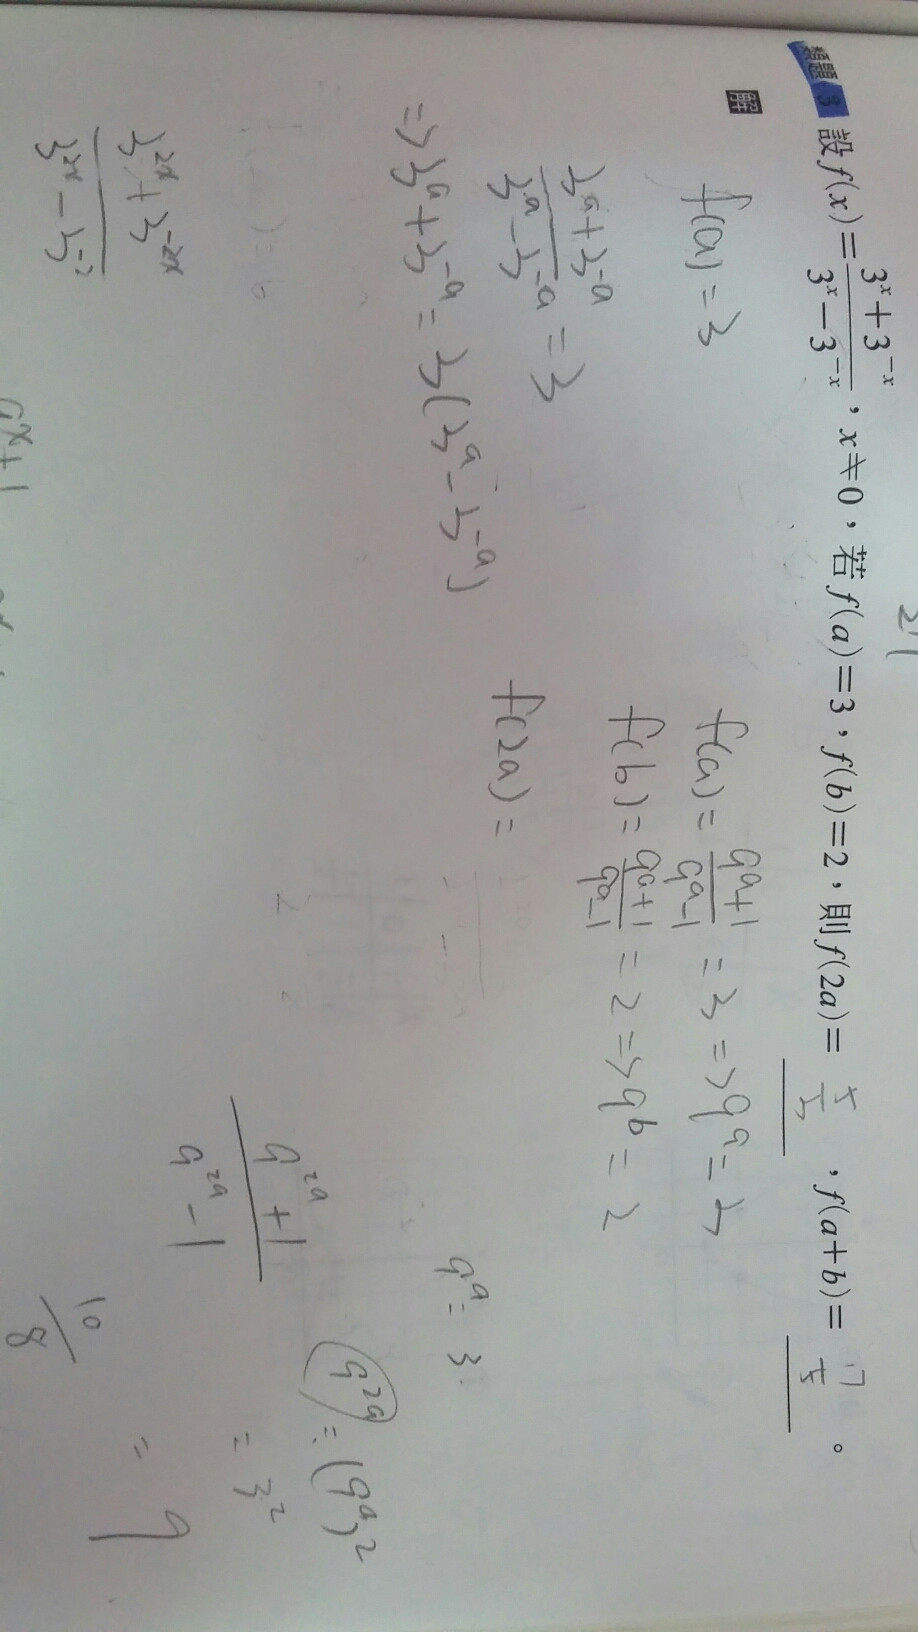 2'1
類題 3 設 f(x) = (3^x + 3^-x)/(3^x − 3^-x),x ≠ 0,若 f(a) = 3,f(b) = 2,則 f(2a) = ,f(a+b) = 7/5 。
解
f(a) = 3
(3^a + 3^-a)/(3^a − 3^-a) = 3
=> 3^a + 3^-a = 3(3^a − 3^-a)
(3^2x + 3^-2x)/(3^2x − 3
f(a) = (9^a+1)/(9^a−1) = 3 => 9^a = 2
f(b) = (9^a+1)/(9^a−1) = 2 => 9^b = 2
f(2a) =
9^a = 3
(9^2a + 1)/(9^2a − 1)
9^2a = (9^a)^2
= 3^2
= 9
10/8